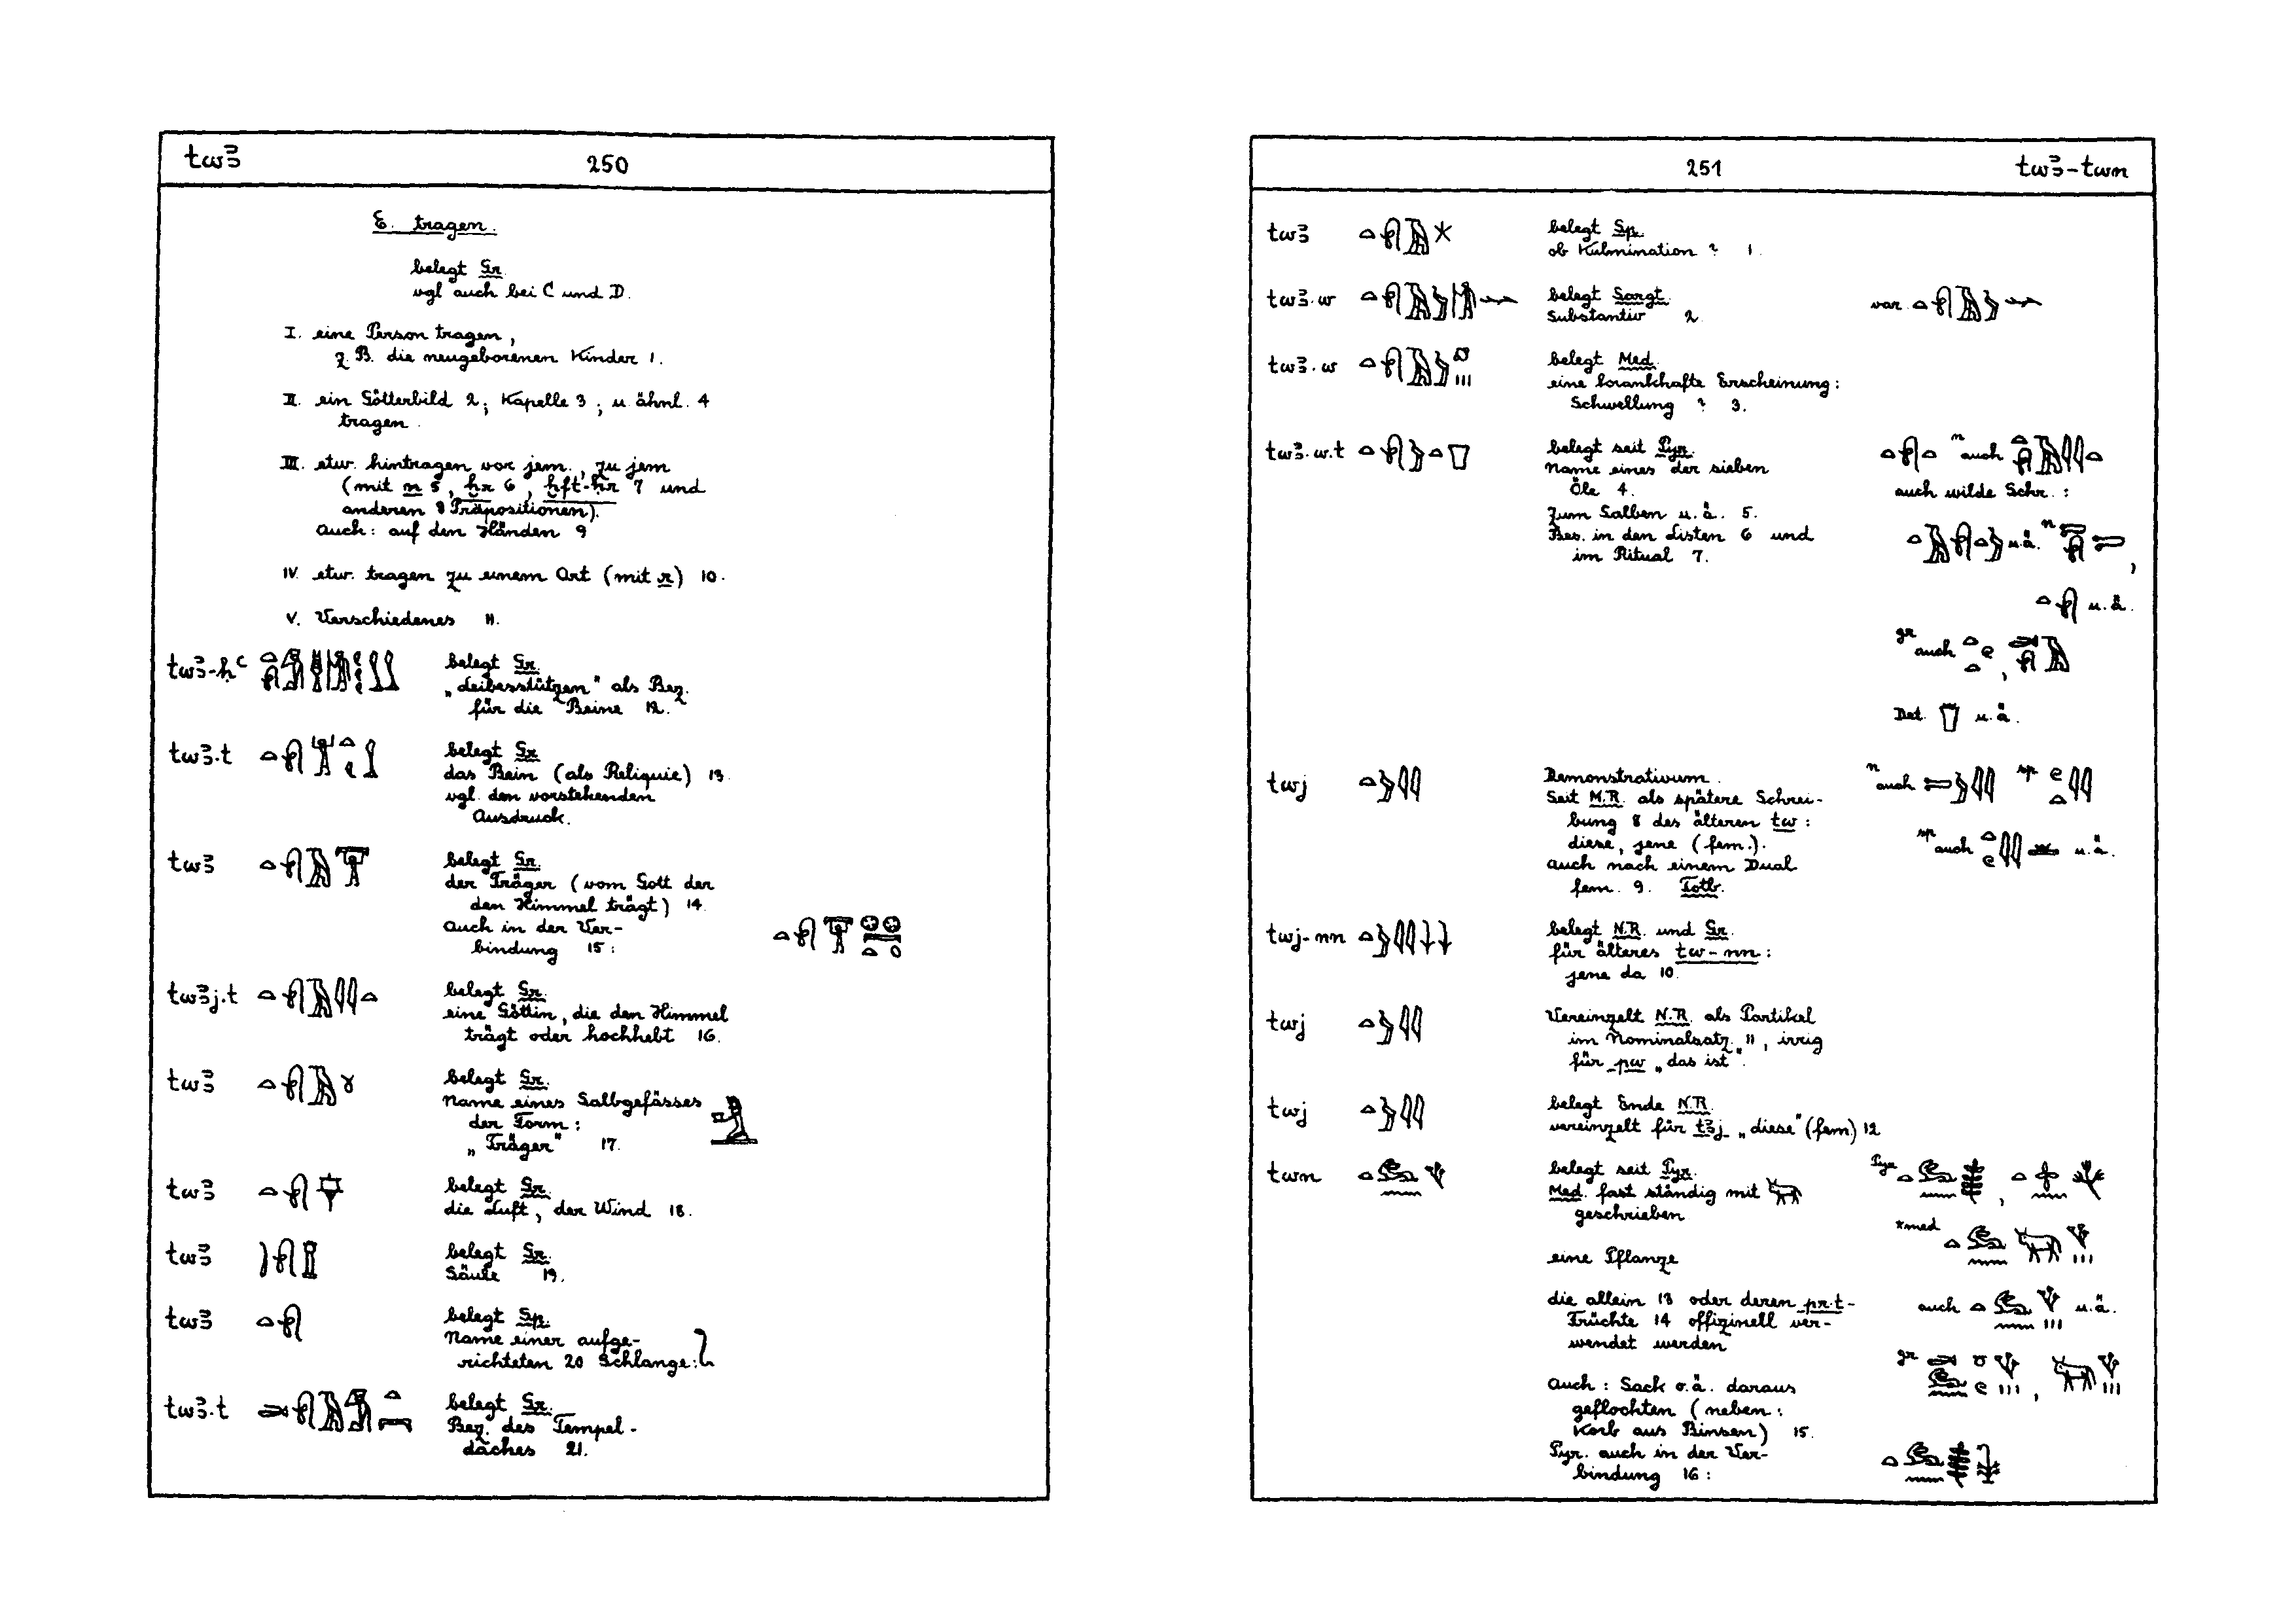 twꜣ 250
E. tragen.
belegt Gr.
vgl auch bei C und D.
I. eine Person tragen,
z. B. die neugeborenen Kinder 1.
II. ein Götterbild 2; Kapelle 3; u. ähnl. 4
tragen.
III. etw. hintragen vor jem., zu jem
(mit n 5, ḫr 6, ḫft-ḥr 7 und
anderen 8 Präpositionen).
Auch: auf den Händen 9
IV. etw. tragen zu einem Ort (mit r) 10.
V. Verschiedenes 11.
twꜣ-ḥꜥ belegt Gr.
„Leibesstützen" als Bez.
für die Beine 12.
twꜣ.t belegt Gr
das Bein (als Reliquie) 13.
vgl. den vorstehenden
Ausdruck.
twꜣ belegt Gr.
der Träger (vom Gott der
den Himmel trägt) 14.
Auch in der Ver-
bindung 15:
twꜣj.t belegt Gr.
eine Göttin, die den Himmel
trägt oder hochhebt 16.
twꜣ belegt Gr.
Name eines Salbgefässes
der Form:
„Träger" 17.
twꜣ belegt Gr.
die Luft, der Wind 18.
twꜣ belegt Gr.
Säule 19.
twꜣ belegt Sp.
Name einer aufge-
richteten 20 Schlange:
twꜣ.t belegt Gr.
Bez. des Tempel-
daches 21.
251 twꜣ-twn
twꜣ belegt Sp.
ob Kulmination ? 1.
twꜣ.w belegt Sargt. var.
Substantiv 2.
twꜣ.w belegt Med.
eine krankhafte Erscheinung:
Schwellung ? 3.
twꜣ.w.t belegt seit Pyr. n auch
Name eines der sieben
Öle 4. auch wilde Schr.:
Zum Salben u.ä. 5.
Bes. in den Listen 6 und u.ä. n ,
im Ritual 7.
u.ä.
gr auch ,
Det. u.ä.
twj Demonstrativum. n auch sp
Seit M.R. als spätere Schrei-
bung 8 des älteren tw:
diese, jene (fem.). sp auch u.ä.
Auch nach einem Dual
fem. 9. Totb.
twj-nn belegt N.R. und Gr.
für älteres tw-nn:
jene da 10.
twj Vereinzelt N.R. als Partikel
im Nominalsatz 11, irrig
für pw „das ist".
twj belegt Ende N.R.
vereinzelt für tꜣj „diese" (fem.) 12
twn belegt seit Pyr. Pyr ,
Med. fast ständig mit
geschrieben
*med
eine Pflanze
die allein 13 oder deren pr.t- auch u.ä.
Früchte 14 offizinell ver-
wendet werden
gr ,
Auch: Sack o.ä. daraus
geflochten (neben:
Korb aus Binsen) 15.
Pyr. auch in der Ver-
bindung 16: